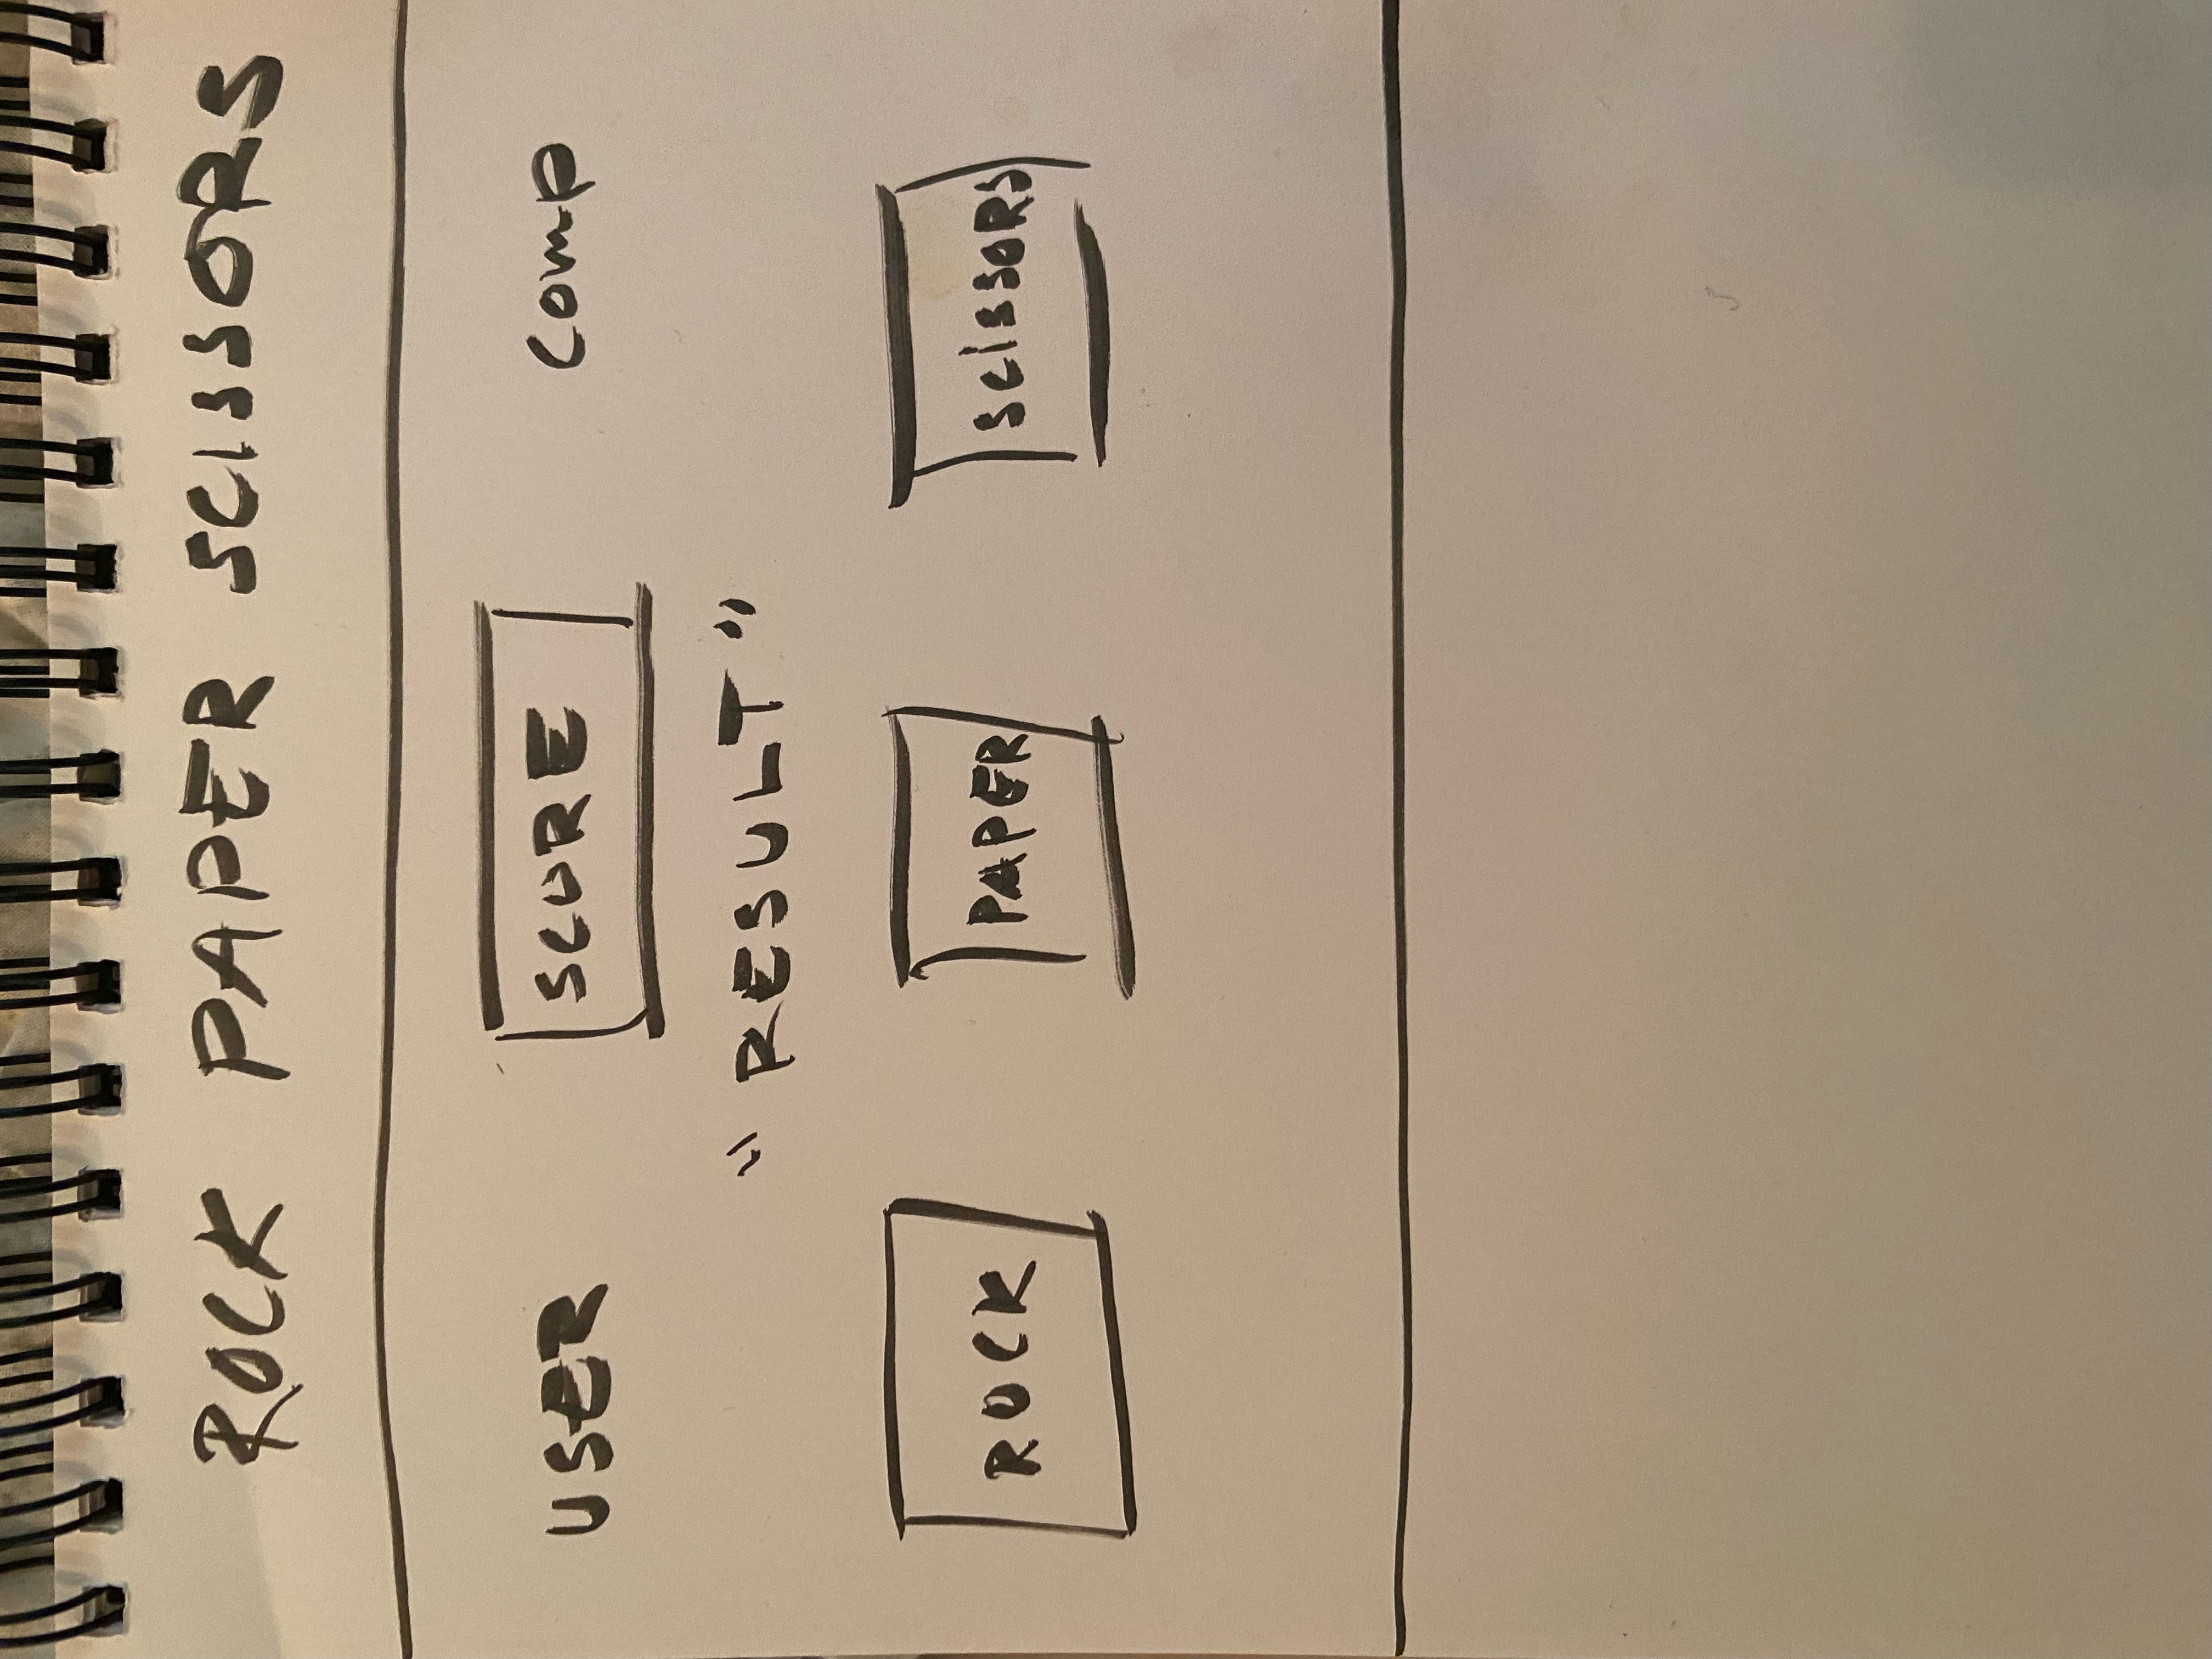 ROCK PAPER SCISSORS
USER SCORE COMP
"RESULT"
ROCK PAPER SCISSORS